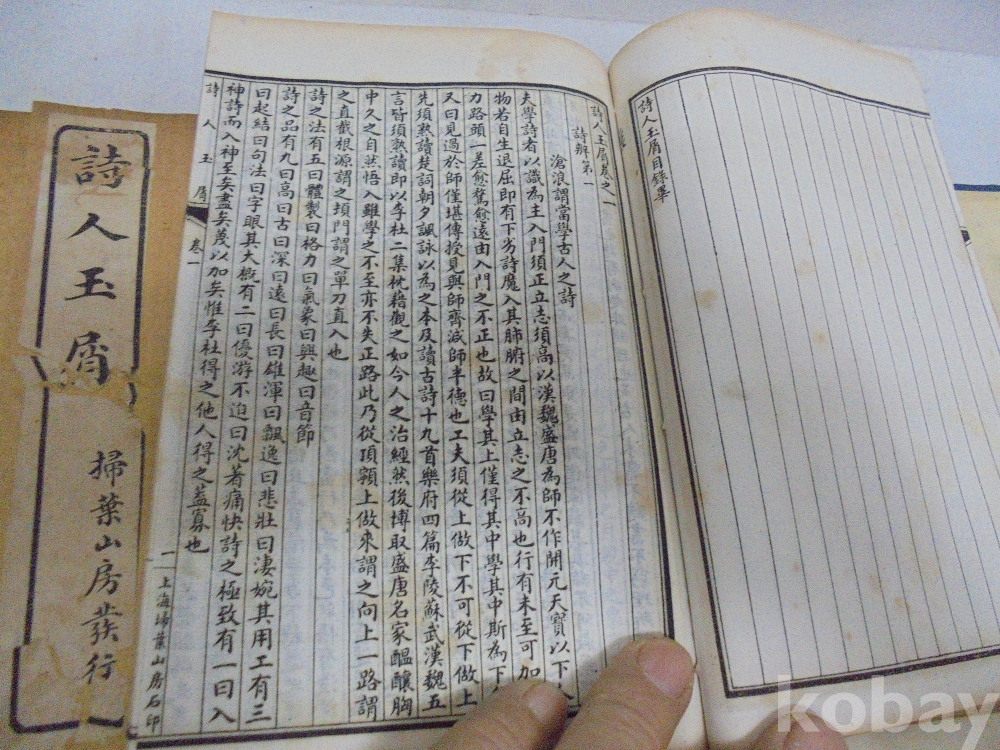 詩人玉屑目錄畢
詩人玉屑卷之一
詩辨第一
滄浪謂當學古人之詩
夫學詩者以識為主入門須正立志須高以漢魏盛唐為師不作開元天寶以下
物若自生退屈即有下劣詩魔入其肺腑之間由立志之不高也行有未至可加
力路頭一差愈騖愈遠由入門之不正也故曰學其上僅得其中學其中斯為下
又曰見過於師僅堪傳授見與師齊減師半德也工夫須從上做下不可從下做上
先須熟讀楚詞朝夕諷詠以為之本及讀古詩十九首樂府四篇李陵蘇武漢魏五
言皆須熟讀即以李杜二集枕藉觀之如今人之治經然後博取盛唐名家醞釀胸
中久之自然悟入雖學之不至亦不失正路此乃從頂顙上做來謂之向上一路謂
之直截根源謂之頓門謂之單刀直入也
詩之法有五曰體製曰格力曰氣象曰興趣曰音節
詩之品有九曰高曰古曰深曰遠曰長曰雄渾曰飄逸曰悲壯曰淒婉其用工有三
曰起結曰句法曰字眼其大概有二曰優游不迫曰沈著痛快詩之極致有一曰入
神詩而入神至矣盡矣蔑以加矣惟李杜得之他人得之蓋寡也
詩人玉屑 卷一 一 上海掃葉山房石印
詩人玉屑
掃葉山房發行
kobay